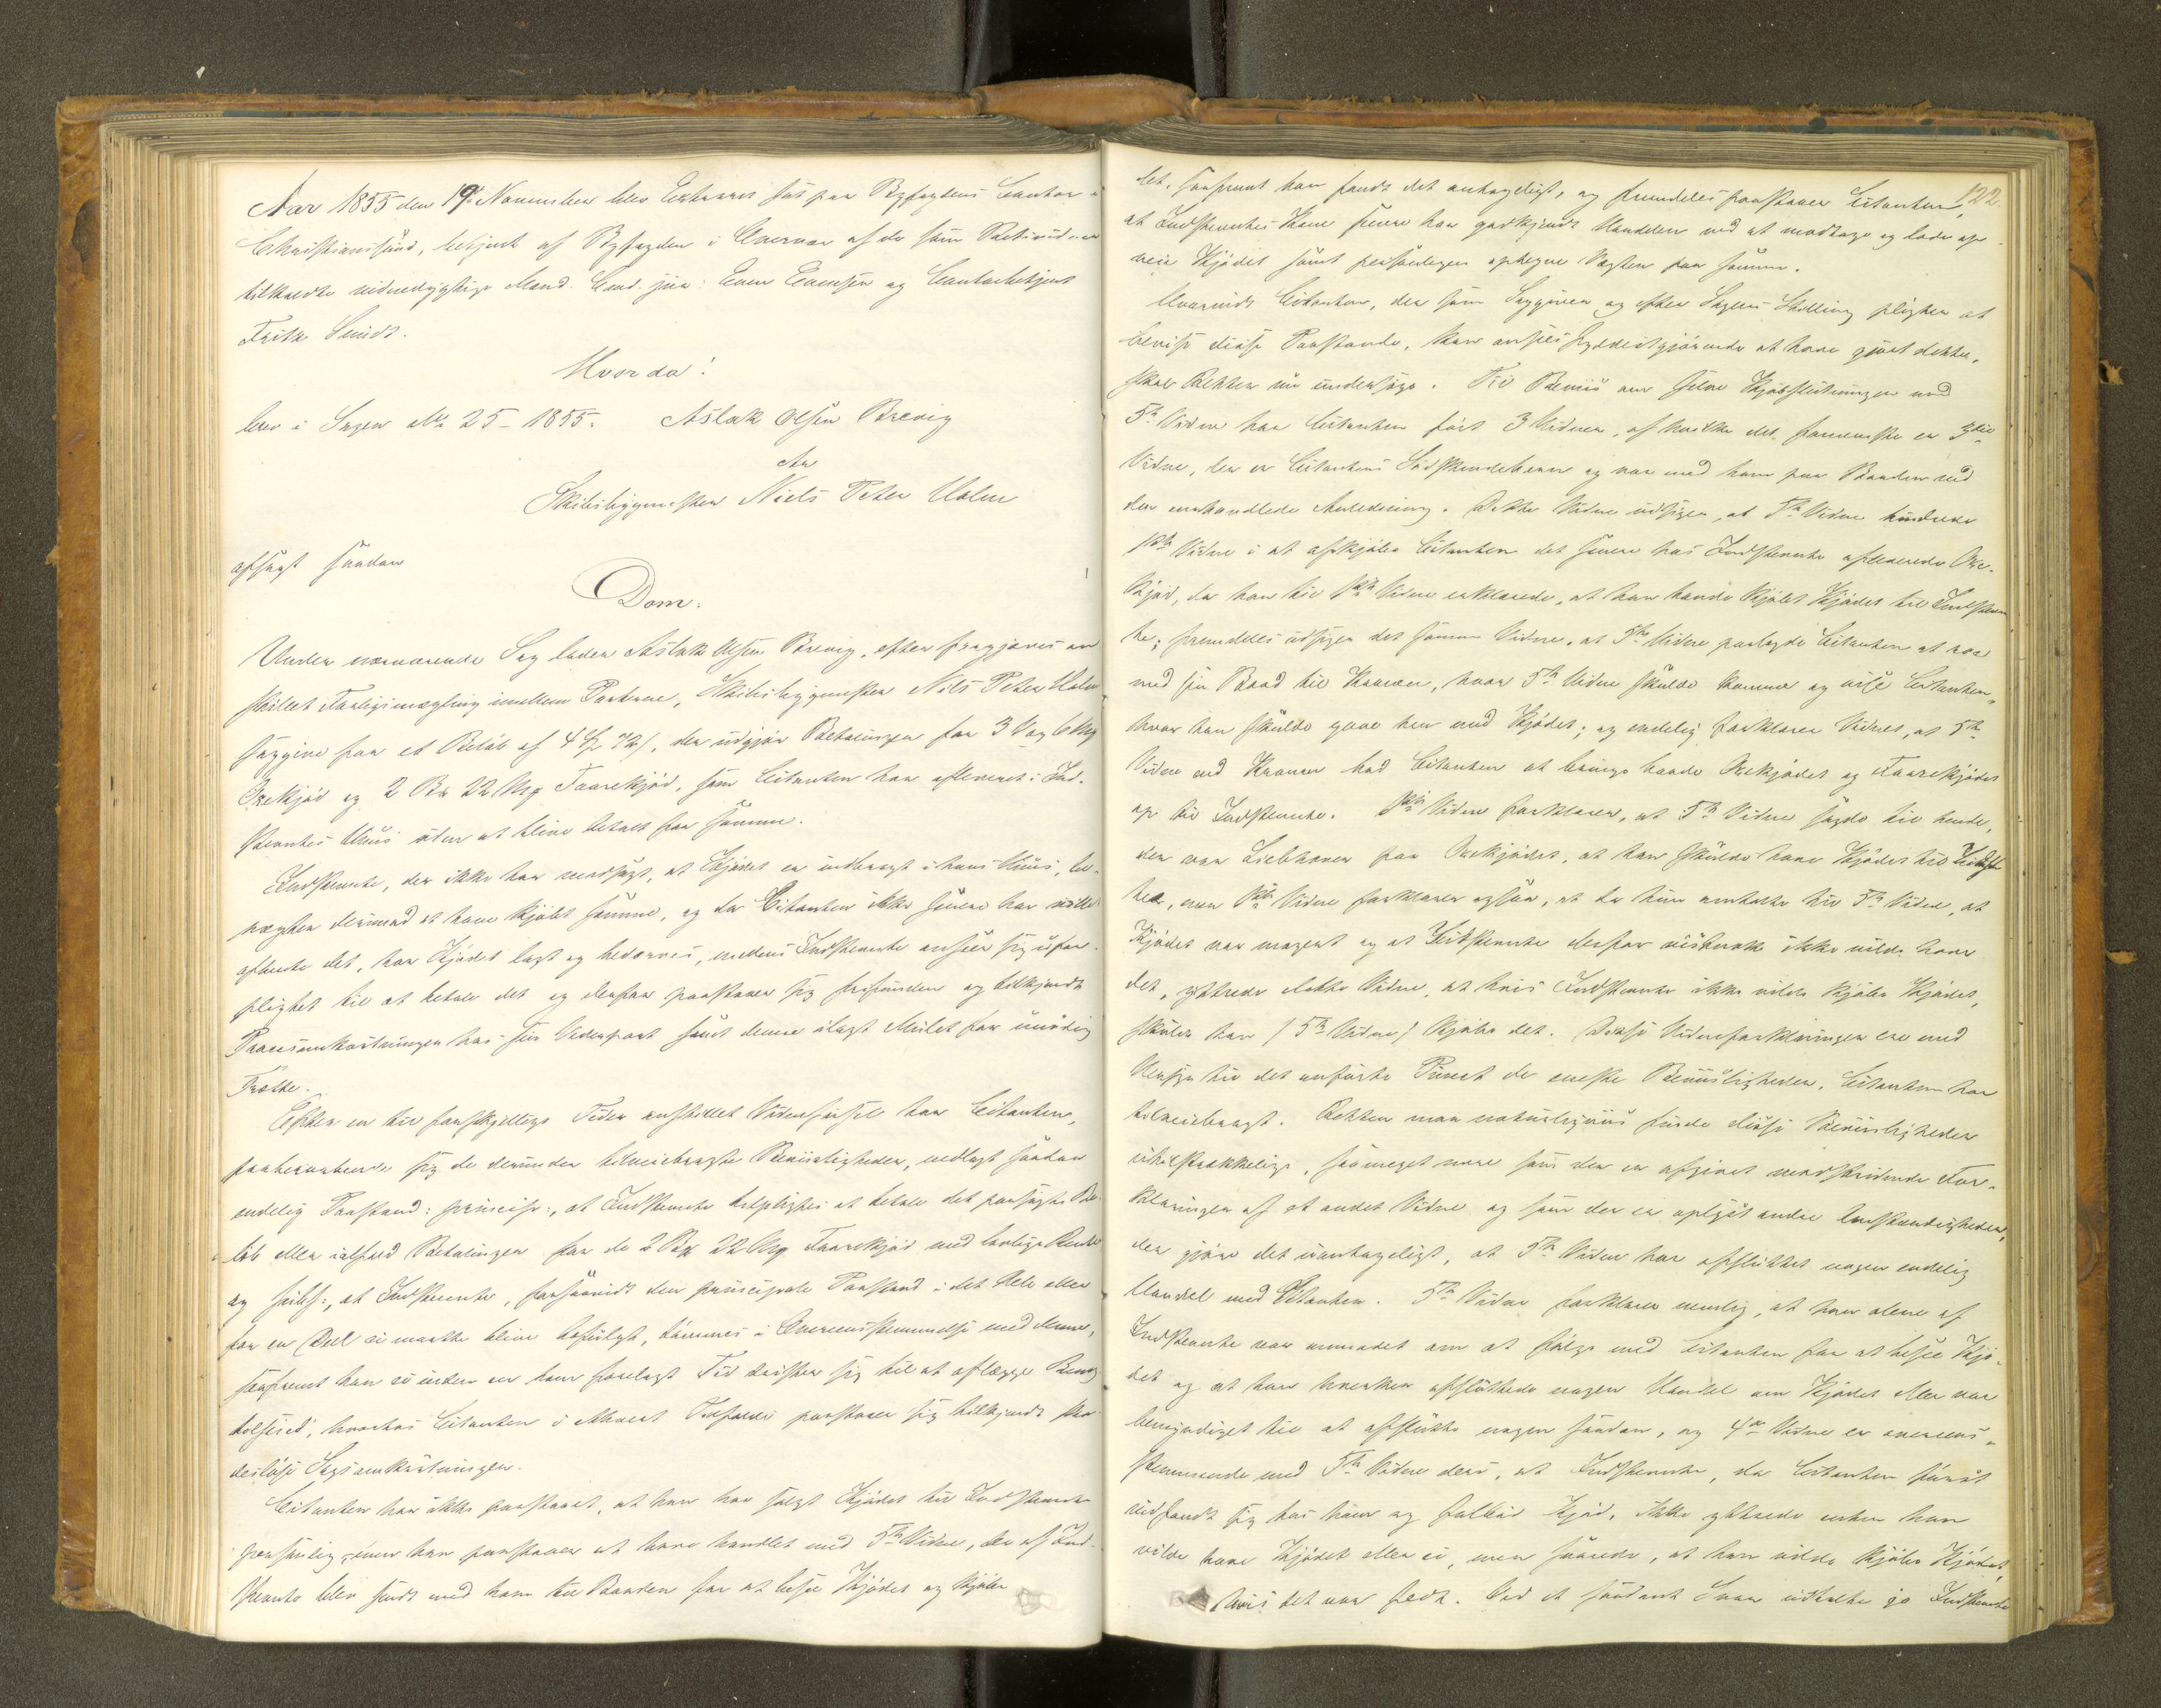 Aar 1855 den 19 November blev Extraret sat paa Byfogdens Contor i
Christianssund, betjent af Byfogden i Overvær af de som Retsvidner
tilkaldte vidnedygtige Mænd Cand. jur: Even Evensen og Contorbetjent
Fritz Smidt.
Hvorda!
blev i Sagen No 25 - 1855. Aslak Olsen Brevig
ctr
Skibsbygmester Niels Peter Holm
afsagt saadan
Dom:
Under nærværende Sag lader Aslak Olsen Brevig, efter forgjæves an
stillet Forligsmægling imellem Parterne, Skibsbygmester Nils Peter Holm
sagsøge for et Beløb af 4 der udgjør Betalingen for 3 Vog 6 Mg
Oxekjød og 2 Bg 22 Mg Faarekjød, som Citanten har afleveret i Ind-
stevntes Huus uden at blive betalt for samme.
Indstevnte, der ikke har modsagt, at Kjødet er indbragt i hans Huus, be-
nægter derimod at have kjøbt samme, og da Citanten ikke senere har villet
afhente det, har Kjødet lagt og bedærvet, medens Indstevnte anseer sig ufor-
pligtet til at betale det og derfor paastaaer sig frifunden og tilkjendt
Procesomkostninger hos sin Vederpart samt denne ilagt Mulct for unødig
Trætte.
Efter en til forskjellige Tider anstillet Vidneførsel har Citanten,
paaberaabende sig de derunder tilveiebragte Beviisligheder, nedlagt saadan
endelig Paastand: principr:, at Indstevnte tilpligtes at betale det paasøgte Be-
løb eller ialfald Betalingen for de 2 Bg 22 Mg Faarekjød med lovlige Renter
og subs:, at Indstevnte, forsaavidt den principale Paastand i det Hele eller
for en Deel ei maatte blive tagfulgt, dømmes i Overeensstemmelse med denne,
saafremt han ei inden en ham forelagt Tid drister sig til at aflægge Benæg
telseseed, hvorhos Citanten i ethvert Tilfælde paastaaer sig tilkjendt ska-
desløse Sagsomkostninger.
Citanten har ikke paastaaet, at han har solgt Kjødet til Indstevnte
personlig, men han paastaaer at have handlet med 5te Vidne, der af Ind-
stevnte blev sendt med ham til Baaden for at besee Kjødet og kjøbe
122.
det, saafremt han fandt det antageligt, og fremdeles paastaaer Citanten,
at Indstevntes Kone senere har godkjendt Handelen ved at modtage og lade op-
veie Kjødet samt personligen optegne Vægten paa samme.
Hvorvidt Citanten, der som Sagsøger og efter Sagens Stilling pligter at
bevise disse Paastande, kan ansees fyldestgjørende at have gjort dette,
skal Retten nu undersøge. Til Beviis om selve Kjøbslutningen med
5te Vidne har Citanten ført 3 Vidner, af hvilke det fornemste er 3die
Vidne, der er Citantens Sødskendebarn og var med ham paa Baaden ved
den omhandlede Anledning. Dette Vidne udsiger, at 5te Vidne hindrede
1ste Vidne i at afkjøbe Citanten det senere hos Indstevnte afleverede Oxe-
kjød, da han til 1ste Vidne erklærede, at han havde kjøbt Kjødet til Indstevn
te; fremdeles udsiger det samme Vidne, at 5te Vidne paalagde Citanten at roe
med sin Baad til Kranen, hvor 5te Vidne skulde komme og vise Citanten,
hvor han skulde gaae hen med Kjødet; og endelig forklarer Vidnet, at 5te
Vidne ved Kranen bad Citanten at bringe baade Oxekjødet og Faarekjødet
op til Indstevnte. 1ste Vidne forklarer, at 5te Vidne sagde til hende,
der var Liebhaver paa Oxekjødet, at han skulde have Kjødet til Indstevn
te, men 1ste Vidne forklarer ogsaa, at da hun omtalte til 5te Vidne, at
Kjødet var magert og at Indstevnte derfor vistnok ikke vilde have
det, yttrede dette Vidne, at hvis Indstevnte ikke vilde kjøbe Kjødet,
skulde han (5te Vidne) kjøbe det. Disse Vidneforklaringer ere med
Hensyn til det anførte Punct de eneste Beviisligheder, Citanten har
tilveiebragt. Retten maa naturligviis finde disse Beviisligheder
utilstrækkelige, saameget mere som der er afgivet modstridende For-
klaringer af et andet Vidne og som der er oplyst andre Omstændigheder,
der gjøre det uantageligt, at 5te Vidne har afsluttet nogen endelig
Handel med Citanten. 5te Vidne forklarer nemlig, at han alene af
Indstevnte var anmodet om at følge med Citanten for at besee Kjø-
det og at han hverken afsluttede nogen Handel om Kjødet eller var
bemyndiget til at afslutte nogen saadan, og 4de Vidne er overeens-
stemmende med 5te Vidne deri, at Indstevnte, da Citanten først
indfandt sig hos ham og falbød Kjød, ikke yttrede enten han
vilde have Kjødet eller ei, men svarede, at han vilde kjøbe Kjødet,
hvis det var fedt. Ved et saadant Svar udtalte jo Indstevnte